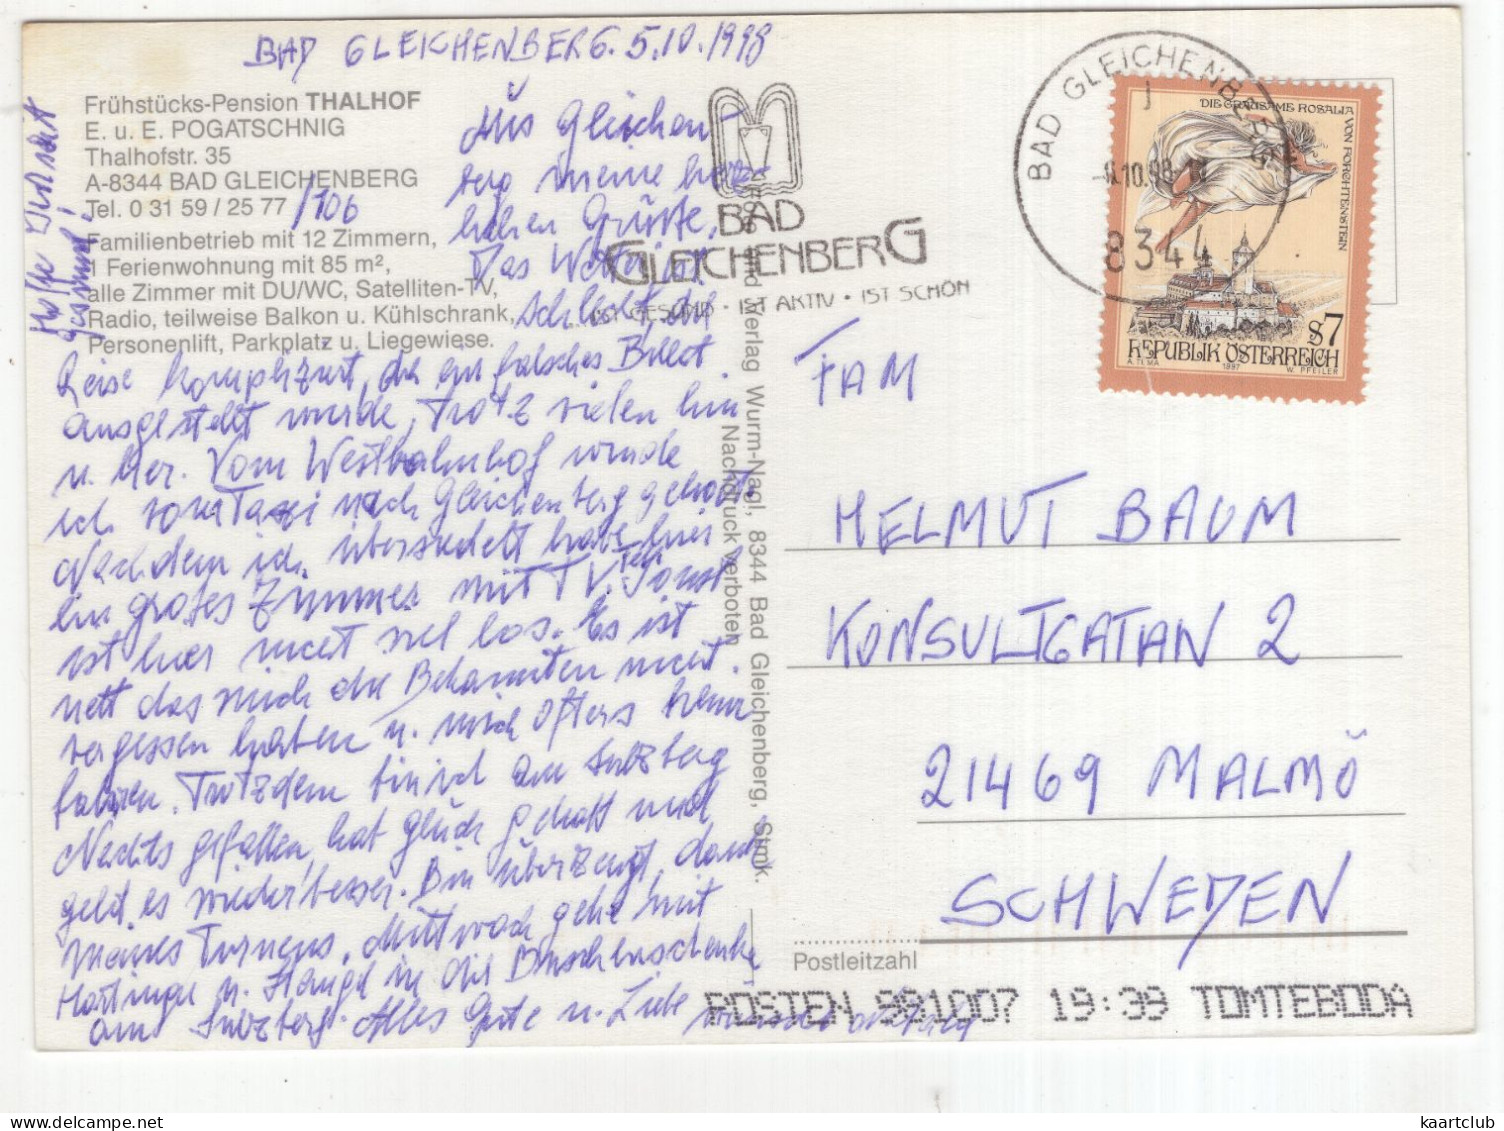 BAD GLEICHENBERG. 5.10.1998
Frühstücks-Pension THALHOF
E. u. E. POGATSCHNIG
Thalhofstr. 35
A-8344 BAD GLEICHENBERG
Tel. 0 31 59 / 25 77 /106
Familienbetrieb mit 12 Zimmern,
1 Ferienwohnung mit 85 m²,
alle Zimmer mit DU/WC, Satelliten-TV,
Radio, teilweise Balkon u. Kühlschrank,
Personenlift, Parkplatz u. Liegewiese.
Aus Gleichen-
berg meine herz-
lichen Grüsse,
Das Wetter ist
schlecht, die
Reise kompliziert, da ein falsches Billet
ausgestellt wurde, trotz vielen hin
u. her. Vom Westbahnhof wurde
ich vom Taxi nach Gleichenberg geholt.
Nachdem ich übersiedelt habe hier
ein großes Zimmer mit TV. Tel. Sonst
ist hier nicht viel los. Es ist
nett das mich die Bekannten nicht
vergessen haben u. mich öfters
fahren. Trotzdem bin ich am Sulzberg
Nachts gefallen, hat glück gehabt und
geht es wieder besser. Bin überzeugt, dank
meines Turnens. Mittwoch gehe mit
u. in die Buschenschenke
am Sulzberg. Alles Gute u. Liebe wünscht
Hoffe Ihr seit
gesund!
Verlag Wurm-Nagl, 8344 Bad Gleichenberg, Stmk.
Nachdruck verboten
BAD
GLEICHENBERG
IST GESUND · IST AKTIV · IST SCHÖN
BAD GLEICHENBERG
10.98
8344
DIE GRAUSAME ROSALIA VON FORCHTENSTEIN
S7
REPUBLIK ÖSTERREICH
1997
W. PFEILER
FAM
HELMUT BAUM
KONSULTGATAN 2
21469 MALMÖ
SCHWEDEN
Postleitzahl
POSTEN 981007 19:39 TOMTEBODA
kaartclub